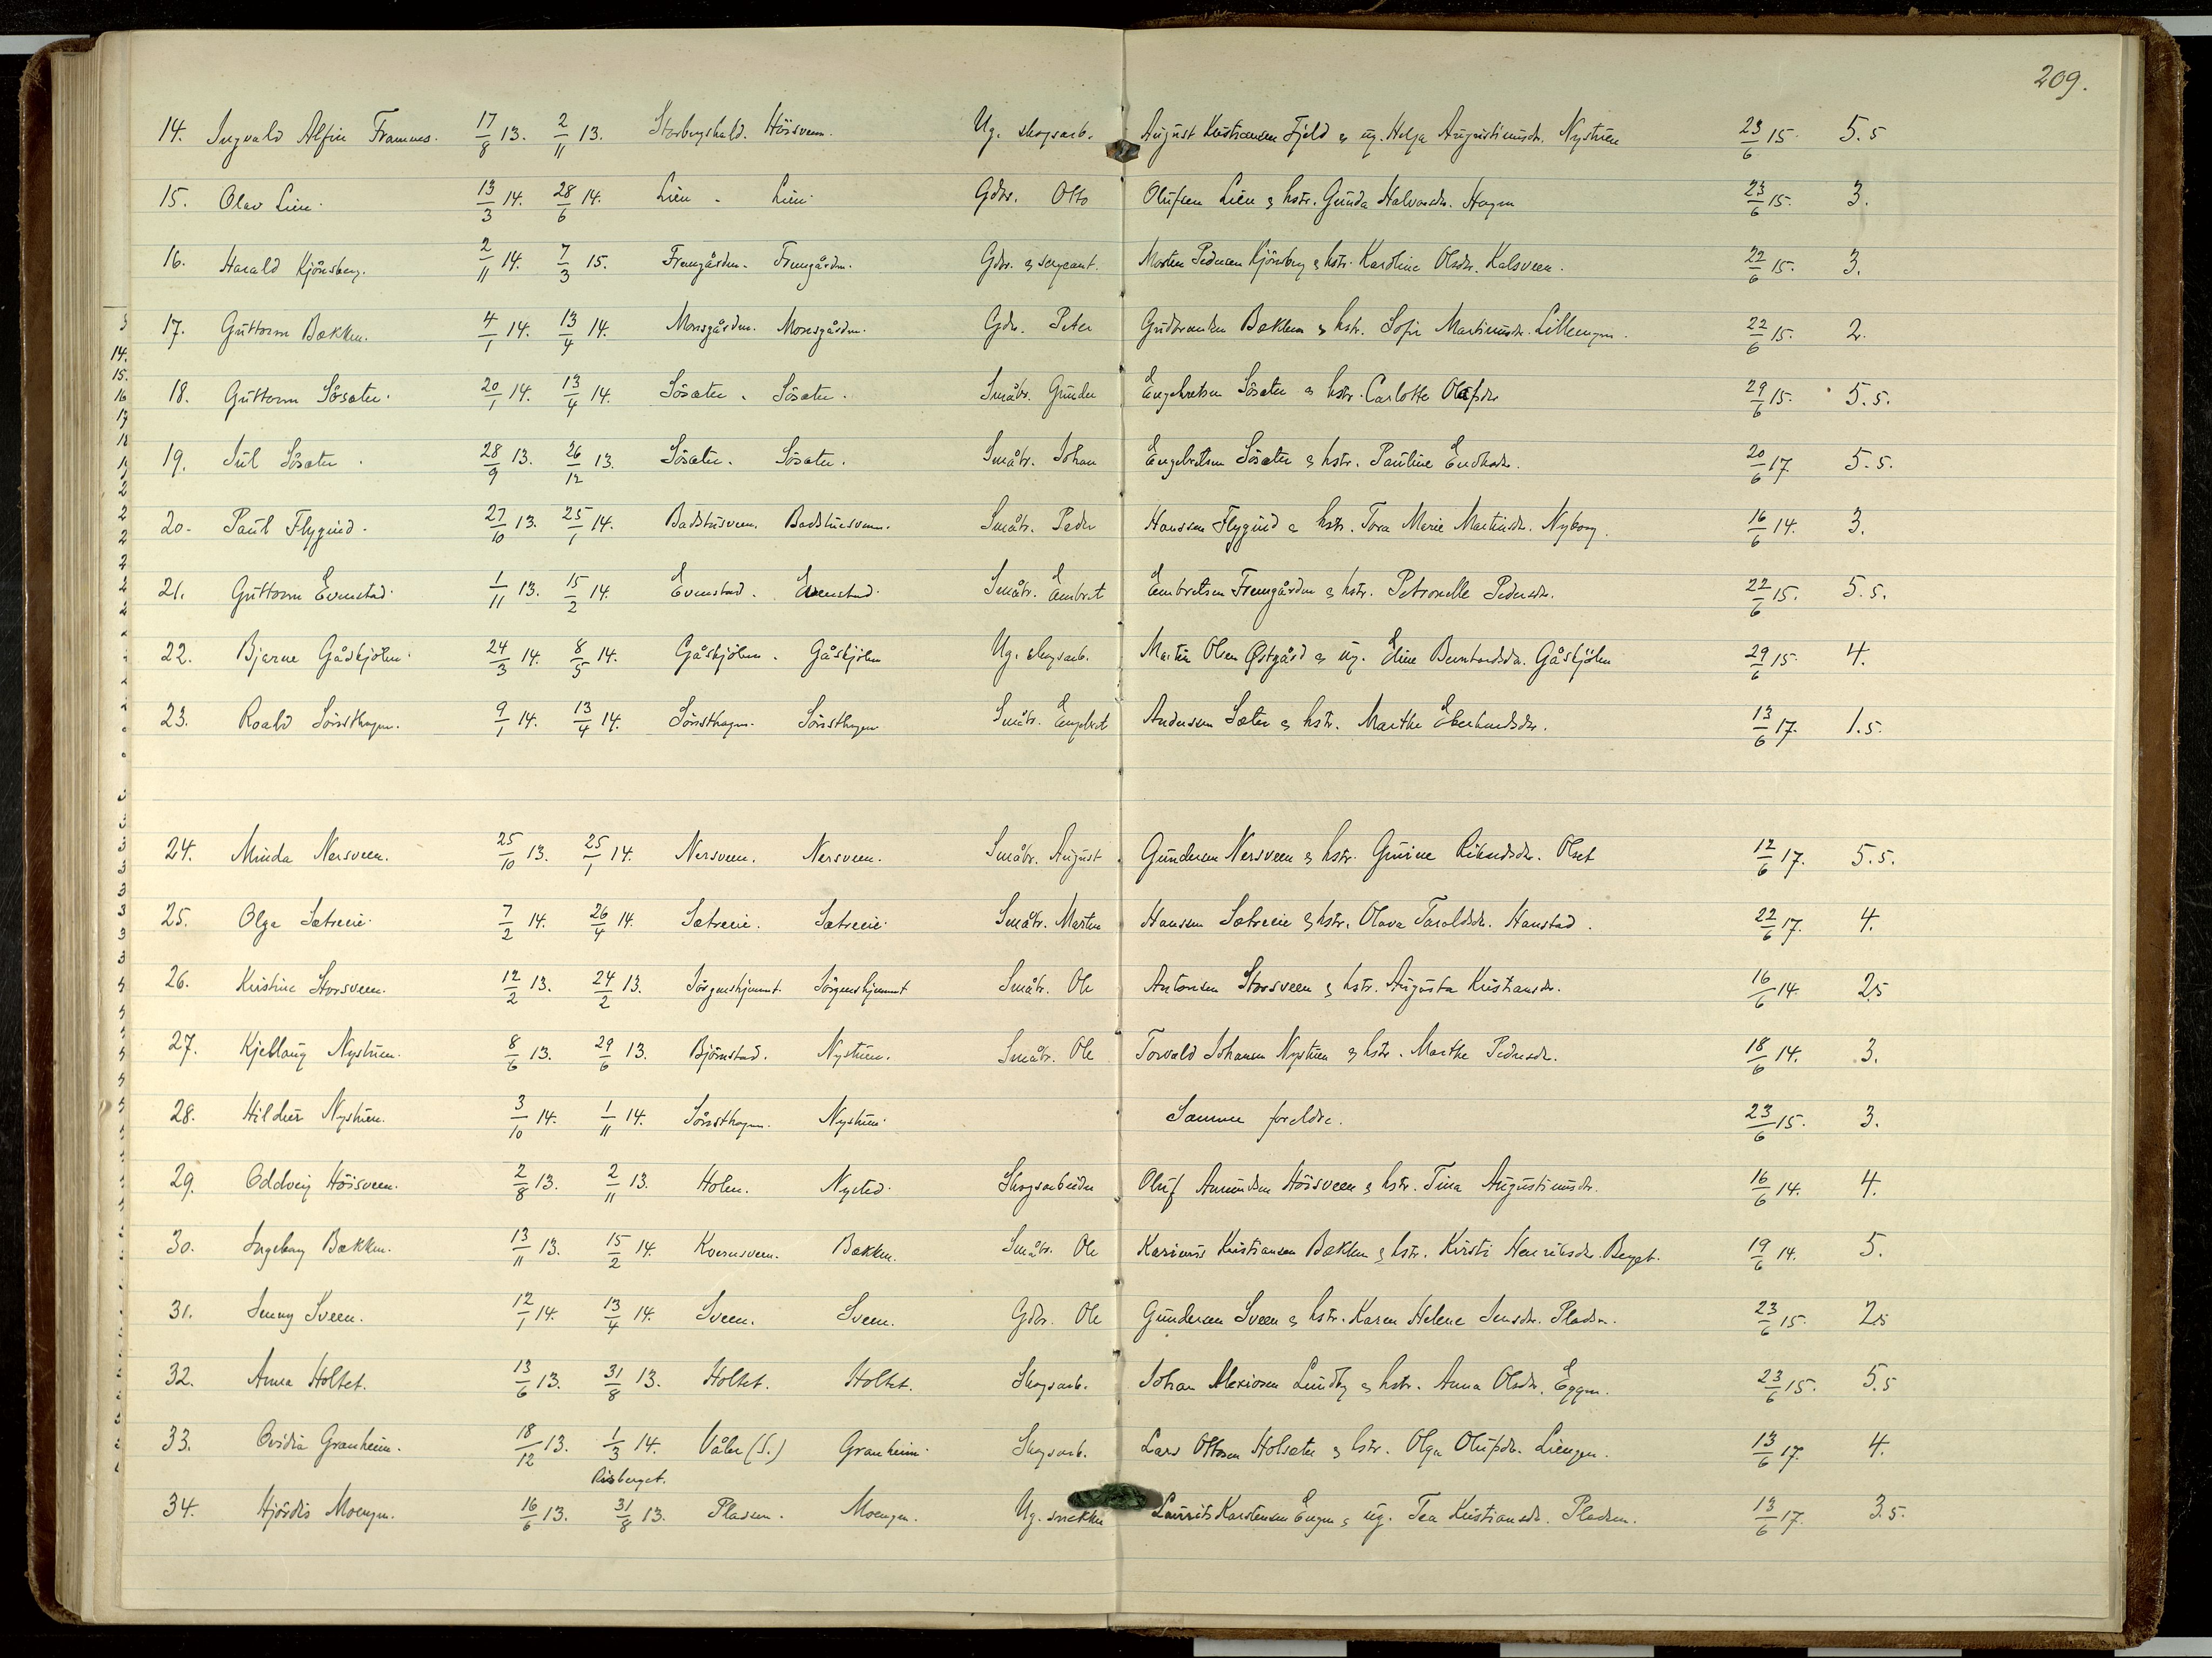 209.
14. Ingvald Alfin Framnes. 17/8 13. 2/11 13. Storbergshald. Höisveen. Ug. skogsarb. August Kristiansen Fjeld & ug. Helga Augustinusdr. Nystuen 23/6 15. 5.5
15. Olav Lien. 13/3 14. 28/6 14. Lien - Lien. Gdbr. Otto Olufsen Lien & hstr. Gunda Halvorsdr. Hagen 23/6 15. 3.
16. Harald Kjönsberg. 2/11 14. 7/3 15. Fremgården. Fremgården. Gdbr. & sergeant. Morten Pedersen Kjönsberg & hstr. Karoline Olsdr. Kalsveen. 22/6 15. 3.
17. Guttorm Bakken. 4/1 14. 13/4 14. Monsgården. Monsgården. Gdbr. Peter Gudbrandsen Bakken & hstr. Sofie Martinusdr. Lillemoen. 22/6 15. 2.
18. Guttorm Sösæter. 20/1 14. 13/4 14. Sösæter. Sösæter. Småbr. Gunder Engebretsen Sösæter & hstr. Carlotte Olafsdr 29/6 15. 5.5.
19. Jul Sösæter. 28/9 13. 26/12 13. Sösæter. Sösæter. Småbr. Johan Engebretsen Sösæter & hstr. Pauline 20/6 17 5.5.
20. Paul Flygind. 27/10 13. 25/1 14. Badstusveen. Badstuesveen. Småbr. Peder Hanssen Flygind & hstr. Tora Marie Martinsdr. Nyborg. 16/6 14. 3.
21. Guttorm Evenstad. 1/11 13. 15/2 14. Evenstad. Evenstad. Småbr. Embret Embretsen Fremgården & hstr. Petronelle Pedersdr. 22/6 15. 5.5.
22. Bjarne Gåskjölen. 24/3 14. 8/5 14. Gåskjölen. Gåskjölen Ug. skogsarb. Martin Olsen Østgård & ug. Eline Berntsdr. Gåskjölen 29/6 15. 4.
23. Roald Sörsthagen. 9/1 14. 13/4 14. Sörsthagen. Sörsthagen Småbr. Engebret Andersen Sæter & hstr. Marthe Eberhardsdr. 13/6 17. 1.5.
24. Minda Nersveen. 25/10 13. 25/1 14. Nersveen. Nersveen. Småbr. August Gundersen Nersveen & hstr. Gurine Olset 12/6 17. 5.5.
25. Olga Sætreeie. 7/2 14. 26/4 14. Sætreeie. Sætreeie. Småbr. Morten Hansen Sætreeie & hstr. Olava Taraldsdr. Hanstad. 22/6 17. 4.
26. Kristine Storsveen. 12/2 13. 24/2 13. Jörgenshjemmet. Jörgenshjemmet Småbr. Ole Antonsen Storsveen & hstr. Augusta Kristiansdr. 16/6 14. 2.5
27. Kjellaug Nystuen. 8/6 13. 29/6 13. Björnstad. Nystuen. Småbr. Ole Torvald Johansen Nystuen & hstr. Marthe Pedersdr. 18/6 14. 3.
28. Hildur Nystuen. 3/10 14. 1/11 14. Sörsthagen. Nystuen. Samme foreldre. 23/6 15. 3.
29. Oddveig Höisveen. 2/8 13. 2/11 13. Holen. Nysted. Skogsarbeider Oluf Amundsen Höisveen & hstr. Tina Augustinusdr. 16/6 14. 4.
30. Ingeborg Bakken. 13/11 13. 15/2 14. Kvernsveen. Bakken. Småbr. Ole Karinus Kristiansen Bakken & hstr. Kirsti Henriksdr. Berget. 19/6 14. 5.
31. Jenny Sveen. 12/1 14. 13/4 14. Sveen. Sveen. Gdbr. Ole Gundersen Sveen & hstr. Karen Helene Jensdr. Pladsen. 23/6 15. 2.5
32. Anna Holtet. 13/6 13. 31/8 13. Holtet. Holtet. Skogsarb. Johan Alexiosen Lundby & hstr. Anna Olsdr. Eggen. 23/6 15. 5.5
33. Ovidia Granheim. 18/12 13. 1/3 14. Våler (S.) Granheim. Skogsarb. Lars Ottosen Holsæter & hstr. Olga Olufsdr. Liengen. 13/6 17. 4.
Risberget.
34. Hjördis Moengen. 16/6 13. 31/8 13. Plassen. Moengen. Ug. snekker Laurits Karstensen Engen & ug. Tea Kristiansdr. Pladsen. 13/6 17. 3.5.